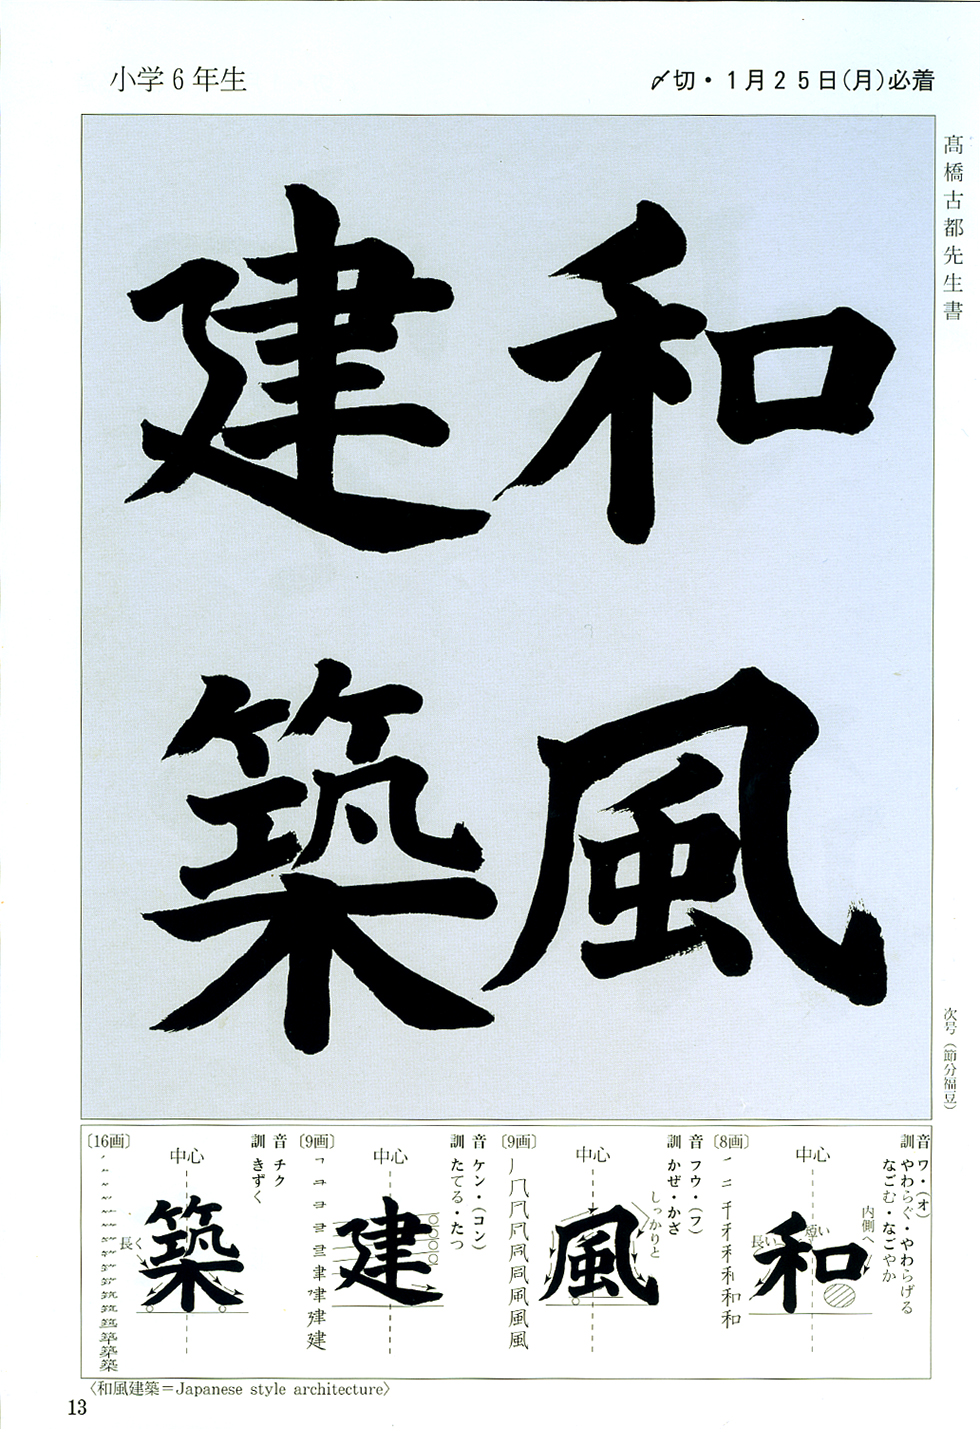 小学6年生
〆切・1月25日(月)必着
髙橋古都先生書
和風
建築
次号(節分福豆)
音 ワ・(オ)
訓 やわらぐ・やわらげる
なごむ・なごやか
内側へ
中心
短い
長い
〔8画〕
音 フウ・(フ)
訓 かぜ・かざ
しっかりと
中心
風
〔9画〕
音 ケン・(コン)
訓 たてる・たつ
中心
建
〔9画〕
音 チク
訓 きずく
中心
長く
築
〔16画〕
和
〈和風建築=Japanese style architecture〉
13